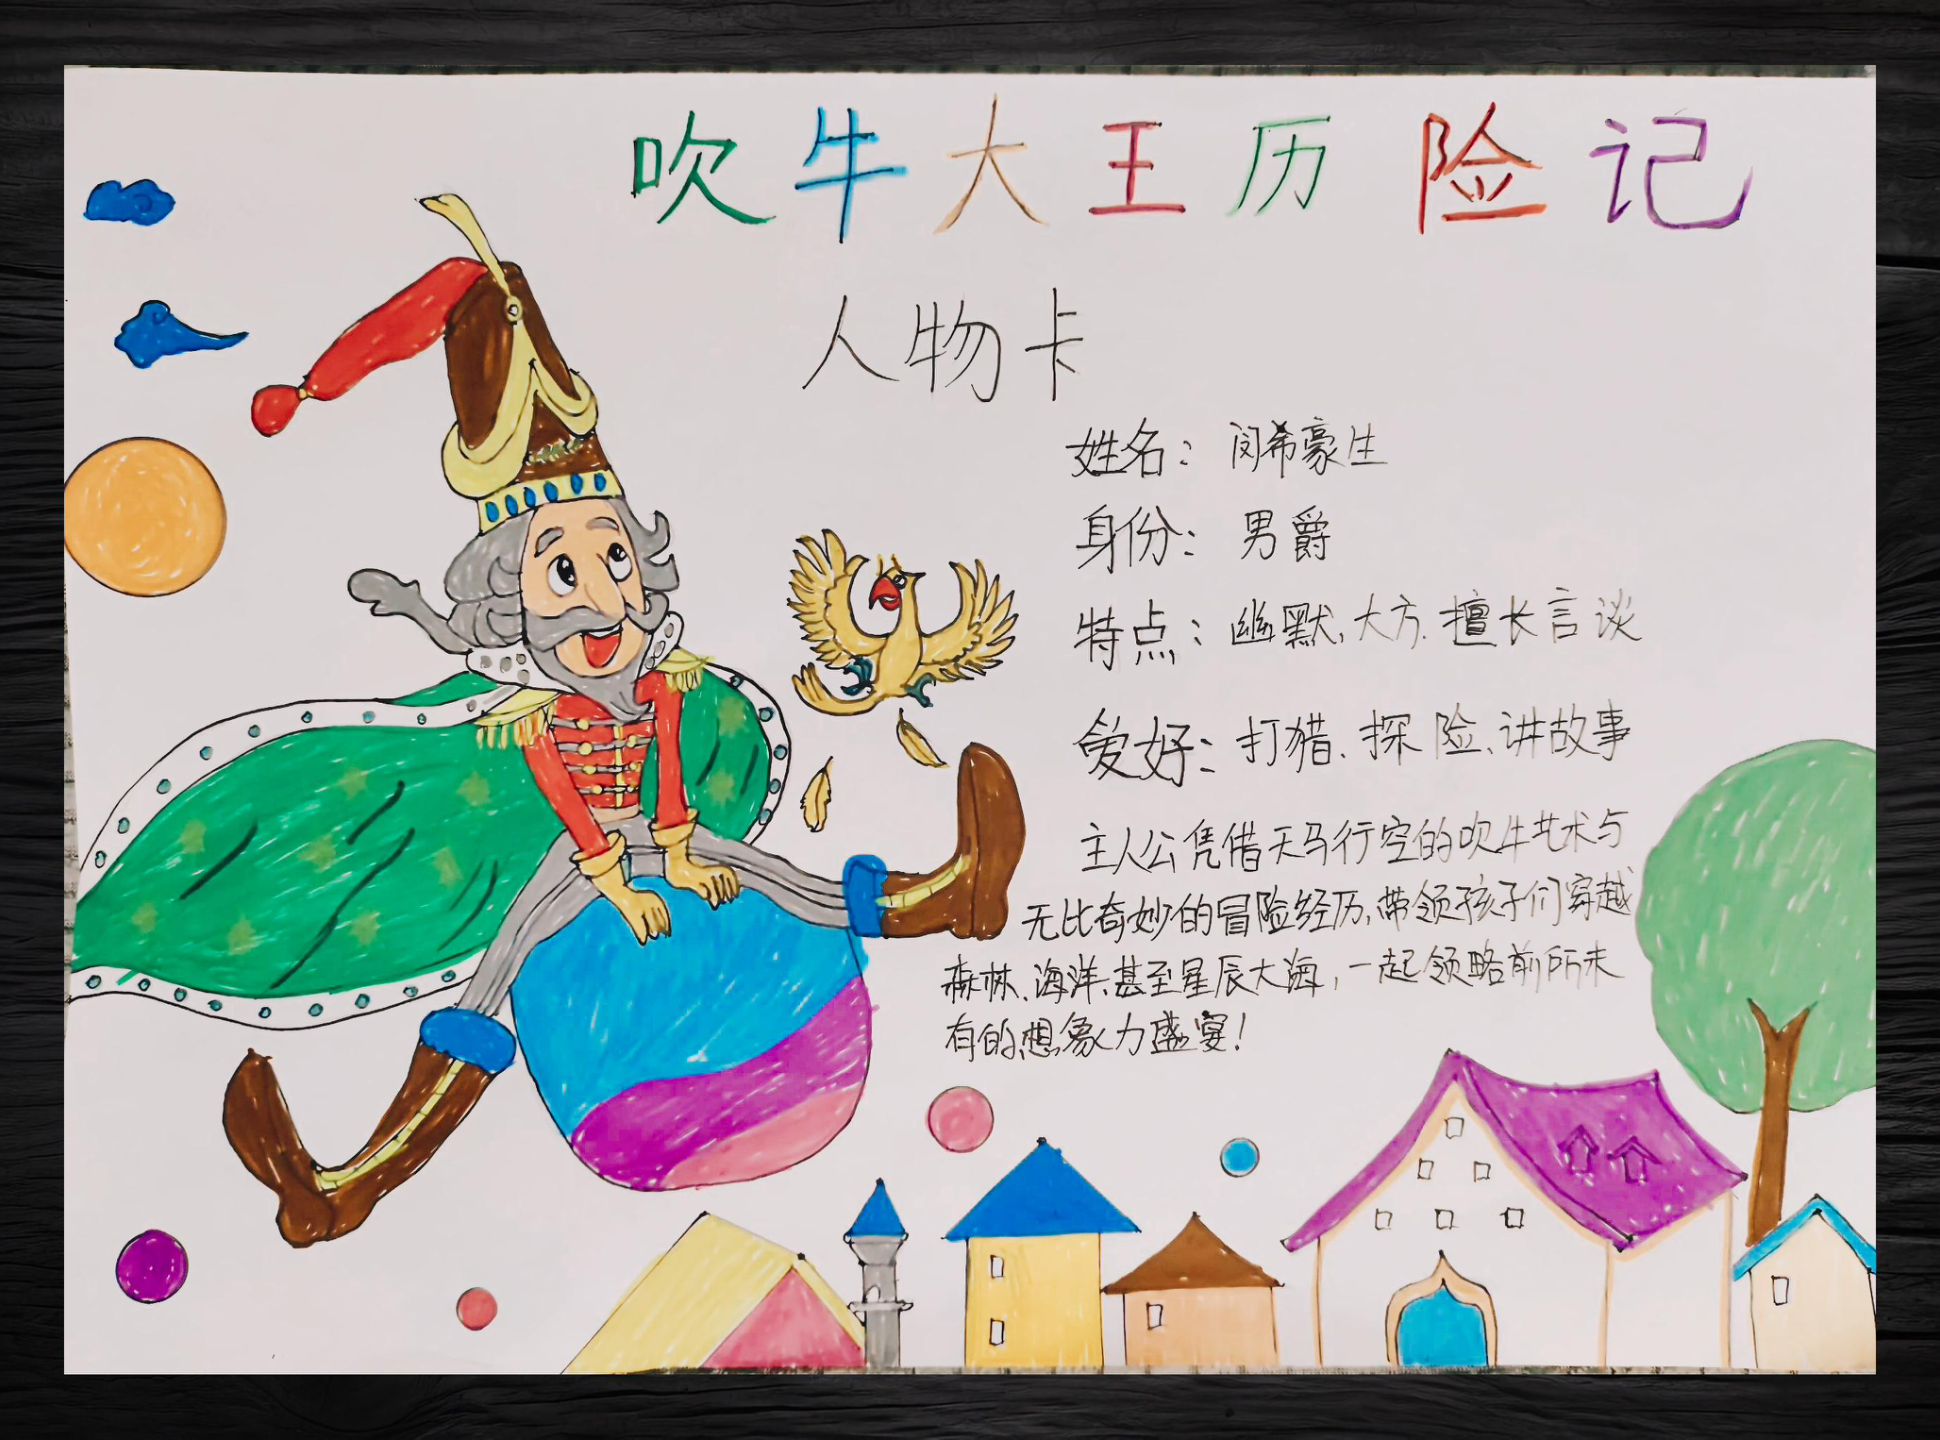 吹牛大王历险记
人物卡
姓名：闵希豪生
身份：男爵
特点：幽默、大方、擅长言谈
爱好：打猎、探险、讲故事
主人公凭借天马行空的吹牛艺术与
无比奇妙的冒险经历,带领孩子们穿越
森林、海洋、甚至星辰大海,一起领略前所未
有的想象力盛宴！